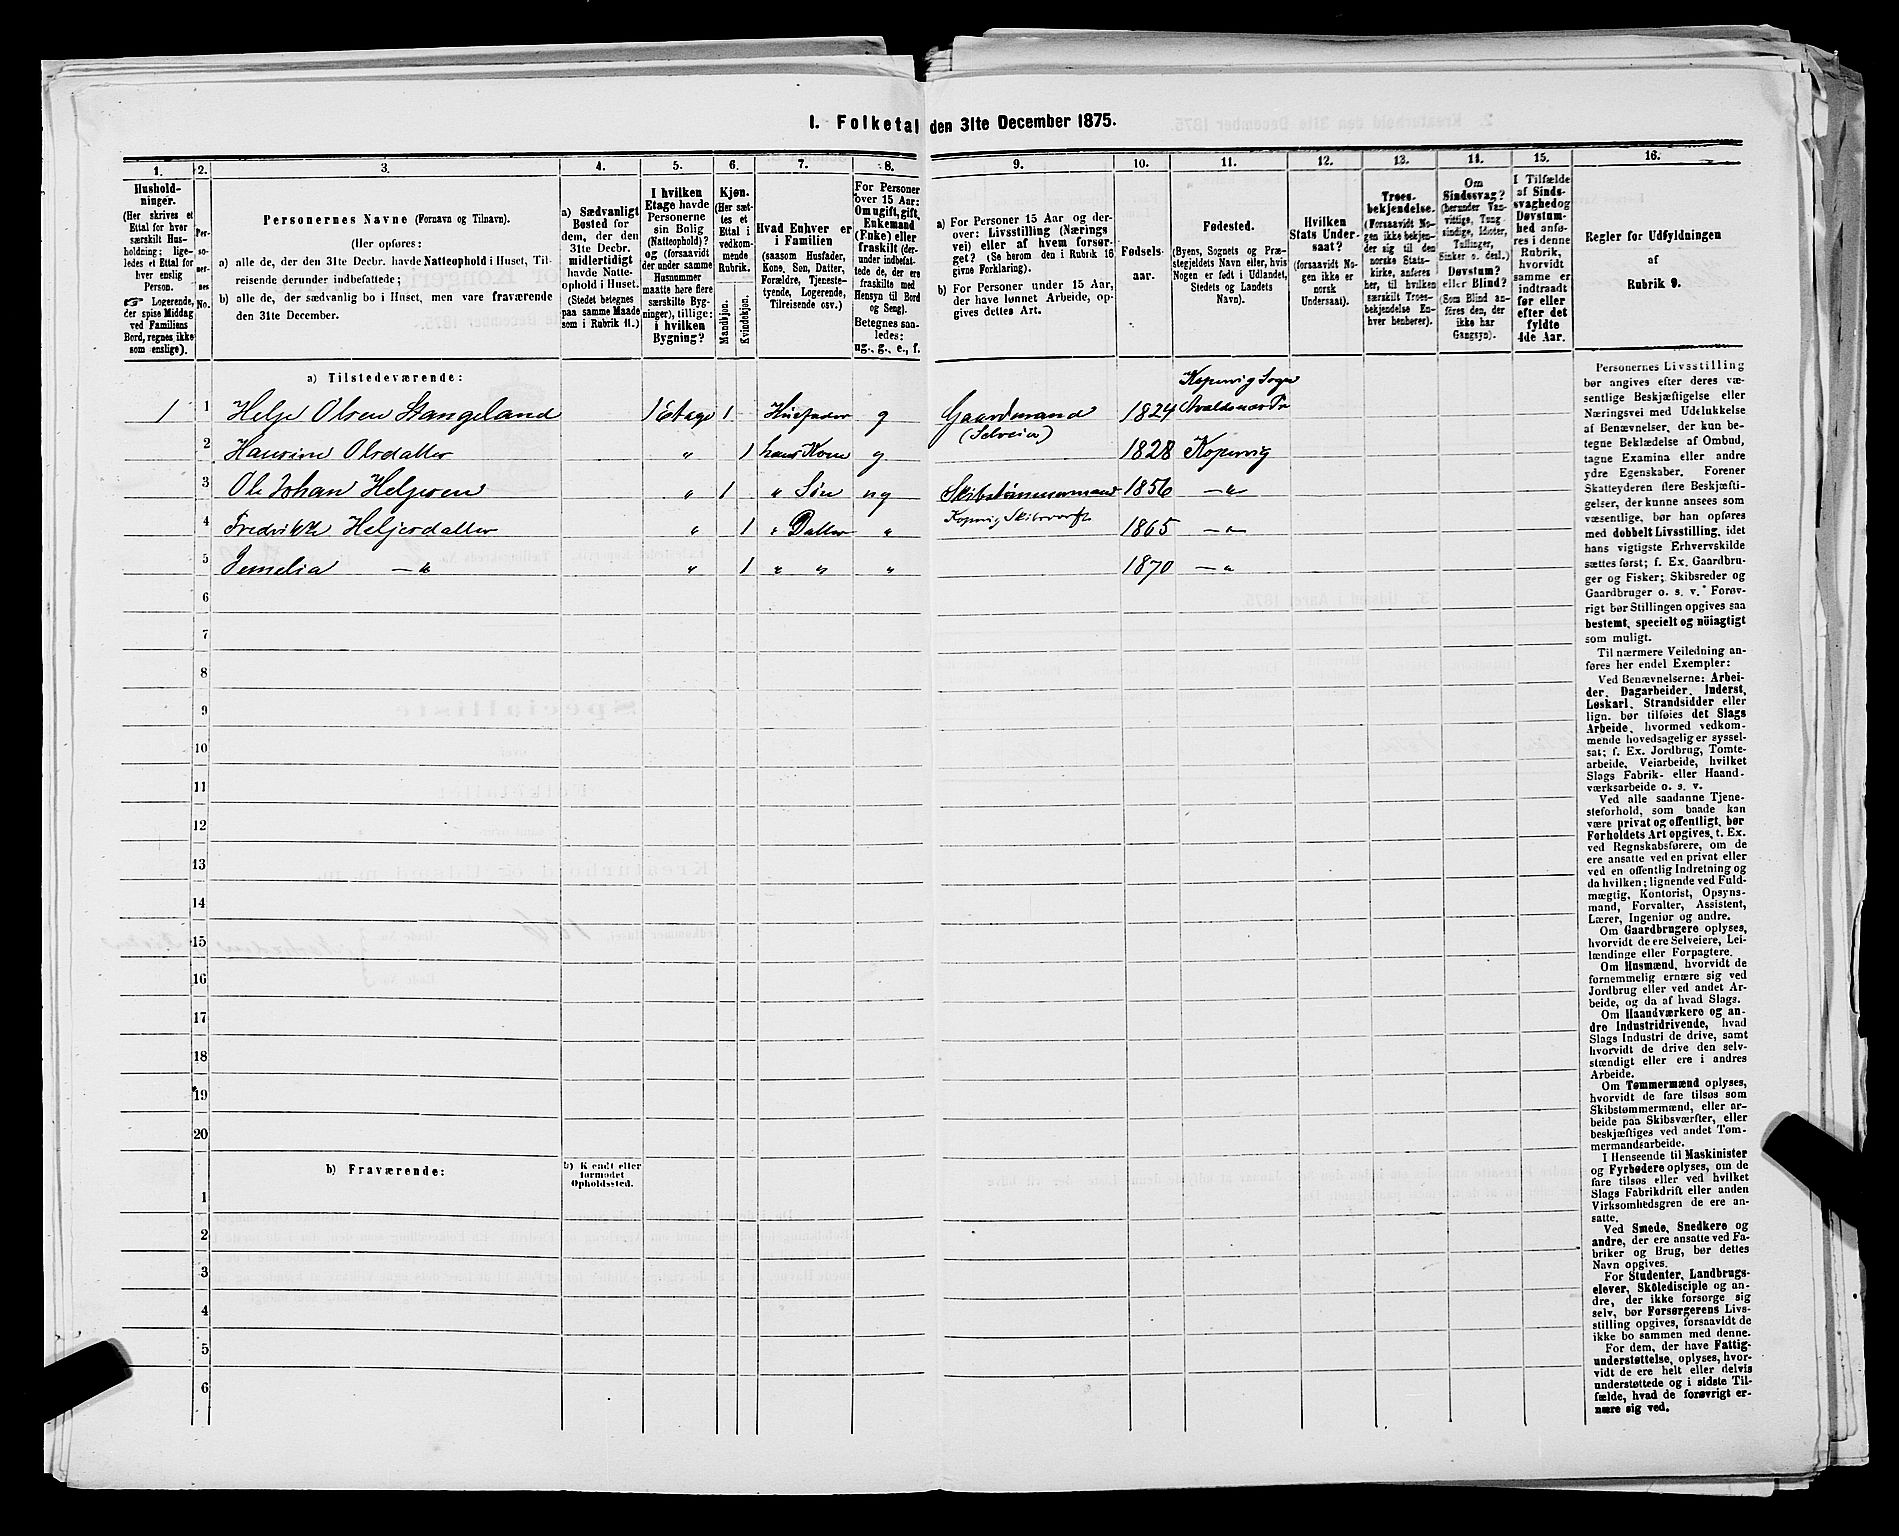 I. Folketal den 31te December 1875.
1. 2. 3. 4. 5. 6. 7. 8. 9. 10. 11. 12. 13. 14. 15. 16.
Hushold-
ninger.
(Her skrives et
Ettal for hver
særskilt Hus-
holdning; lige-
ledes et Ettal for
hver enslig
Person.
☞ Logerende,
der spise Middag
ved Familiens
Bord, regnes ikke
som enslige).
Per-
so-
ner-
nes
No.
Personernes Navne (Fornavn og Tilnavn).
(Her opføres:
a) alle de, der den 31te Decbr. havde Natteophold i Huset, Til-
reisende derunder indbefattede;
b) alle de, der sædvanlig bo i Huset, men vare fraværende
den 31te December.
a) Sædvanligt
Bosted for
dem, der den
31te Decbr.
midlertidigt
havde Natte-
ophold i Huset.
(Stedet betegnes
paa samme Maade
som i Rubrik 11.)
I hvilken
Etage havde
Personerne
sin Bolig
(Natteophold)?
og (forsaavidt
der under samme
Husnummer
maatte høre flere
særskilte Byg-
ninger), tillige:
i hvilken
Bygning?
Kjøn.
(Her sæt-
tes et
Ettal i
vedkom-
mende
Rubrik.
Mandkjøn.
Kvindekjøn.
Hvad Enhver er
i Familien
(saasom Husfader,
Kone, Søn, Datter,
Forældre, Tjeneste-
tyende, Logerende,
Tilreisende osv.)
For Personer
over 15 Aar:
Om ugift, gift,
Enkemand
(Enke) eller
fraskilt (der-
under indbefat-
tede de, der ere
fraskilte med
Hensyn til Bord
og Seng).
Betegnes saa-
ledes:
ug., g., e., f.
a) For Personer 15 Aar og der-
over: Livsstilling (Nærings
vei) eller af hvem forsør-
get? (Se herom den i Rubrik 16
givne Forklaring).
b) For Personer under 15 Aar,
der have lønnet Arbeide, op-
gives dettes Art.
Fødsels-
aar.
Fødested.
(Byens, Sognets og Præ-
stegjeldets Navn eller, hvis
Nogen er født i Udlandet,
Stedets og Landets
Navn).
Hvilken
Stats Under-
saat?
(forsaavidt No-
gen ikke er
norsk
Undersaat).
Troes-
bekjendelse.
(Forsaavidt No-
gen ikke bekjen-
der sig til den
norske Stats-
kirke, anføres
her, til hvilken
særskilt Troes-
bekjendelse En-
hver henhører).
Om
Sindssvag?
(herunder Van-
vittige, Tung-
sindige, Idioter,
Tullinger,
Sinker o. desl.)
Døvstum?
eller Blind?
(Som Blind an-
føres den, der
ikke har
Gangsyn).
I Tilfælde
af Sinds-
svaghed og
Døvstum-
hed anfø-
res i denne
Rubrik,
hvorvidt
samme er
indtraadt
før eller
efter det
fyldte
4de Aar.
Regler for Udfyldningen
af
Rubrik 9.
a) Tilstedeværende:
Kopervig Sogn
1 1 Helje Olsen Stangeland 1 Etage 1 Husfader g Gaardmand 1824 Avaldsnæs Pr
(Selveier)
2 Hansine Olsdatter " 1 hans Kone g 1828 Kopervig
3 Ole Johan Heljesen " 1 " Søn ug Skibstømmermand 1856 — " —
Kopervig Skibsværft
4 Fredrikke Heljesdatter " 1 " Datter " 1865 — " —
5 Semelia — " " 1 " " " 1870 — "
6
7
8
9
10
11
12
13
14
15
16
17
18
19
20
b) Fraværende:
b) Kjendt eller
formodet
Opholdssted.
1
2
3
4
5
6
Personernes Livsstilling
bør angives efter deres væ-
sentlige Beskjæftigelse eller
Næringsvei med Udelukkelse
af Benævnelser, der kun be-
tegne Beklædelse af Ombud,
tagne Examina eller andre
ydre Egenskaber. Forener
Skatteyderen flere Beskjæfti-
gelser, der kunne ansees som
væsentlige, bør han opføres
med dobbelt Livsstilling, idet
hans vigtigste Erhvervskilde
sættes først; f. Ex. Gaardbru-
ger og Fisker; Skibsreder og
Gaardbruger o. s. v. Forøv-
rigt bør Stillingen opgives saa
bestemt, specielt og nöiagtigt
som muligt.
Til nærmere Veiledning an-
føres her endel Exempler:
Ved Benævnelserne: Arbei-
der, Dagarbeider, Inderst,
Løskarl, Strandsidder eller
lign. bør tilføies det Slags
Arbeide, hvormed vedkom-
mende hovedsagelig er syssel-
sat; f. Ex. Jordbrug, Tomte-
arbeide, Veiarbeide, hvilket
Slags Fabrik- eller Haand-
værksarbeide o. s. v.
Ved alle saadanne Tjene-
steforhold, som baade kan
være privat og offentligt, bør
Forholdets Art opgives, t. Ex.
ved Regnskabsførere, om de
ere ansatte ved en privat eller
ved en offentlig Indretning og
da hvilken; lignende ved Fuld-
mægtig, Kontorist, Opsyns-
mand, Forvalter, Assistent,
Lærer, Ingeniør og andre.
Om Gaardbrugere oplyses,
hvorvidt de ere Selveiere, Lei-
lændinge eller Forpagtere.
Om Husmænd, hvorvidt de
fornemmelig ernære sig ved
Jordbrug eller ved andet Ar-
beide, og da af hvad Slags.
Om Haandværkere og an-
dre Industridrivende, hvad
Slags Industri de drive, samt
hvorvidt de drive den selv-
stændigt eller ere i andres
Arbeide.
Om Tømmermænd oplyses,
hvorvidt de fare tilsøs som
Skibstømmermænd, eller ar-
beide paa Skibsværfter, eller
beskjæftiges ved andet Tøm-
mermandsarbeide.
I Henseende til Maskinister
og Fyrbødere oplyses, om de
fare tilsøs eller ved hvilket
Slags Fabrikdrift eller anden
Virksomhedsgren de ere an-
satte.
Ved Smede, Snedkere og
andre, der ere ansatte ved Fa-
briker og Brug, bør dettes
Navn opgives.
For Studenter, Landbrugs-
elever, Skoledisciple og an-
dre, der ikke forsørge sig
selv, bør Forsørgerens Livs-
stilling opgives, forsaavidt de
ikke bo sammen med denne.
For dem, der have Fattig-
understøttelse, oplyses, hvor-
vidt de ere helt eller delvis
understøttede og i sidste Til-
fælde, hvad de forøvrigt er-
nære sig ved.